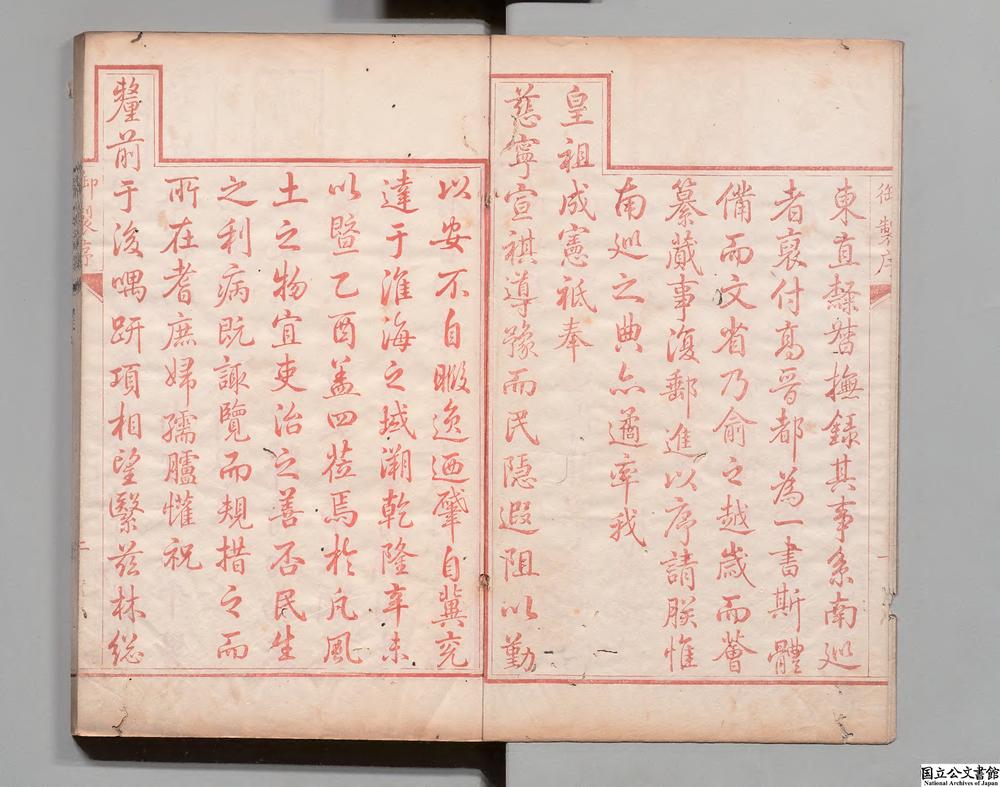 御製序
一
東直隸督撫錄其事系南廵
者裒付高晉都為一書斯體
備而文省乃俞之越歲而薈
纂蕆事復郵進以序請朕惟
南廵之典亦遹率我
皇祖成憲祗奉
慈寧宣祺導豫而民隱遐阻以勤
以安不自暇逸迺肇自冀兗
達于淮海之域溯乾隆辛未
以暨乙酉盖四蒞焉於凡風
土之物宜吏治之善否民生
之利病既諏覽而規措之而
所在耆庶婦孺臚懽祝
釐前于後喁趼項相望繄茲林總
御製序
二
国立公文書館
National Archives of Japan